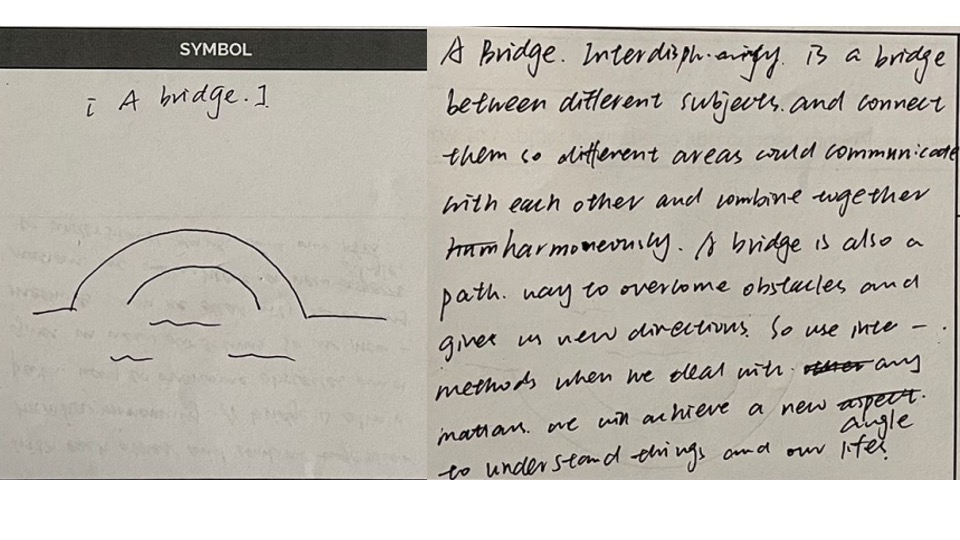 SYMBOL
[ A bridge. ]
A Bridge. Interdisph.airfy. is a bridge
between different subjects. and connect
them so different areas could communicate
with each other and combine together
harmoneously. A bridge is also a
path. way to overcome obstacles and
gives us new directions. So use inte -
methods when we deal with. other any
mattars. we will achieve a new aspect.
angle
to understand things and our lifes.